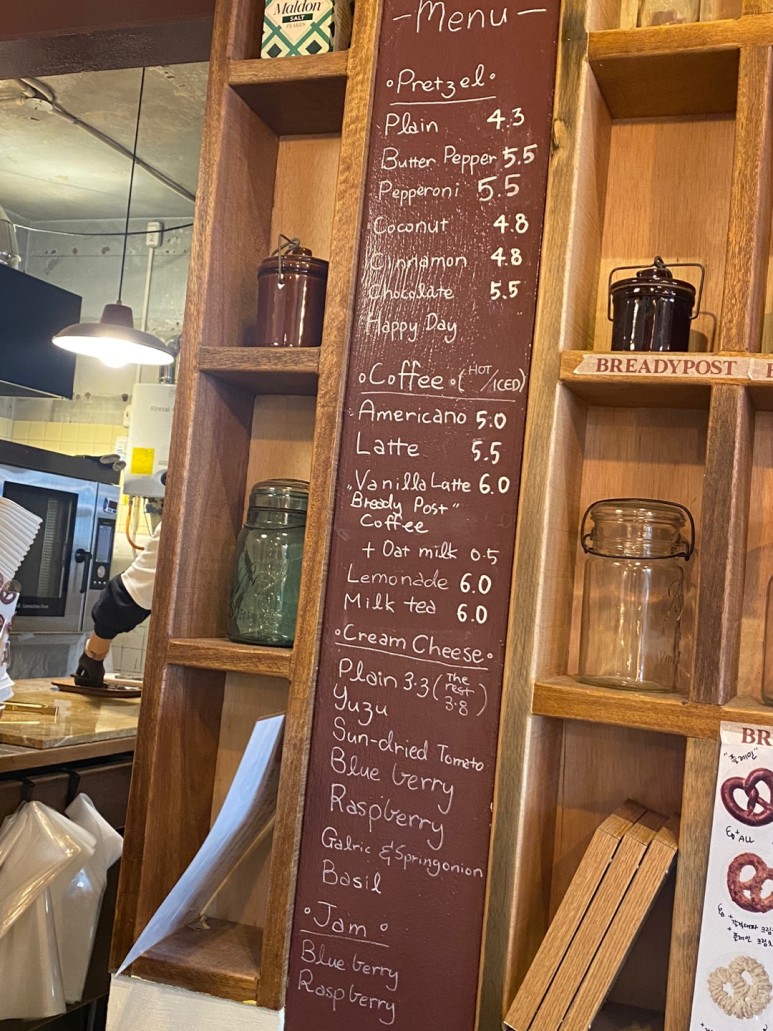 Maldon
SALT
FLAKES
-Menu-
Pretzel
Plain 4.3
Butter Pepper 5.5
Pepperoni 5.5
Coconut 4.8
Cinnamon 4.8
Chocolate 5.5
Happy Day
Coffee (HOT/ICED)
Americano 5.0
Latte 5.5
Vanilla Latte 6.0
"Bready Post"
Coffee
+ Oat milk 0.5
Lemonade 6.0
Milk tea 6.0
Cream Cheese
Plain 3.3 (The rest 3.8)
Yuzu
Sun-dried Tomato
Blue berry
Raspberry
Galric & Springonion
Basil
Jam
Blue berry
Raspberry
BREADYPOST
BR
"플레인"
+ALL